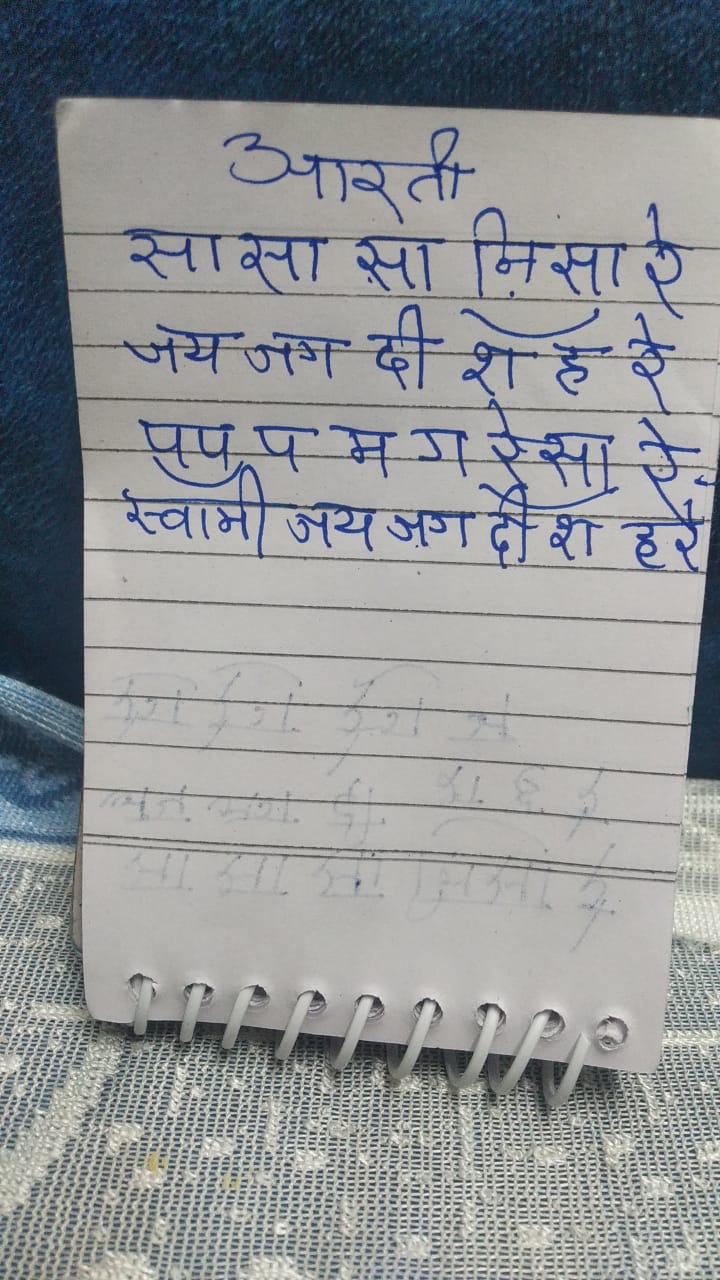 आरती
सा सा सा नि़ सा रे
जय जग दी श ह रे
प प प म ग रे सा रे
स्वामी जय जग दी श हरे